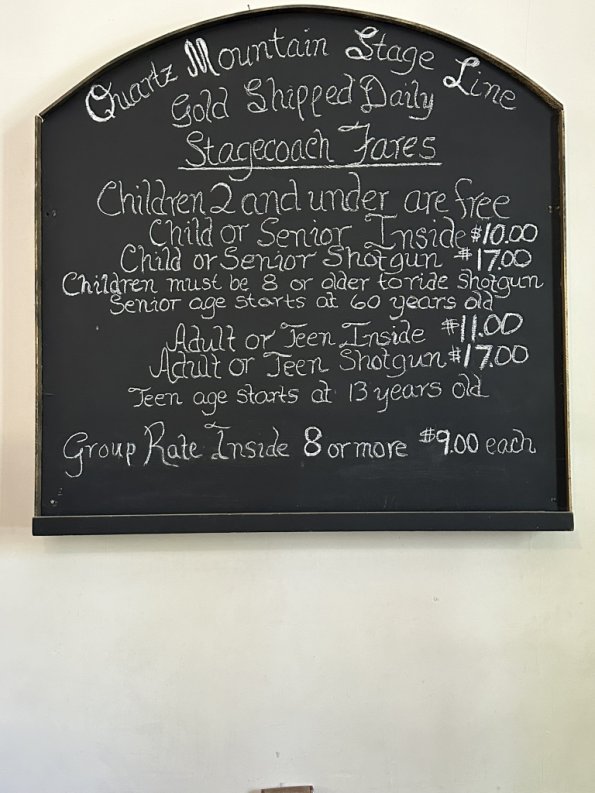 Quartz Mountain Stage Line
Gold Shipped Daily
Stagecoach Fares
Children 2 and under are free
Child or Senior Inside $10.00
Child or Senior Shotgun $17.00
Children must be 8 or older to ride Shotgun
Senior age starts at 60 years old
Adult or Teen Inside $11.00
Adult or Teen Shotgun $17.00
Teen age starts at 13 years old
Group Rate Inside 8 or more $9.00 each